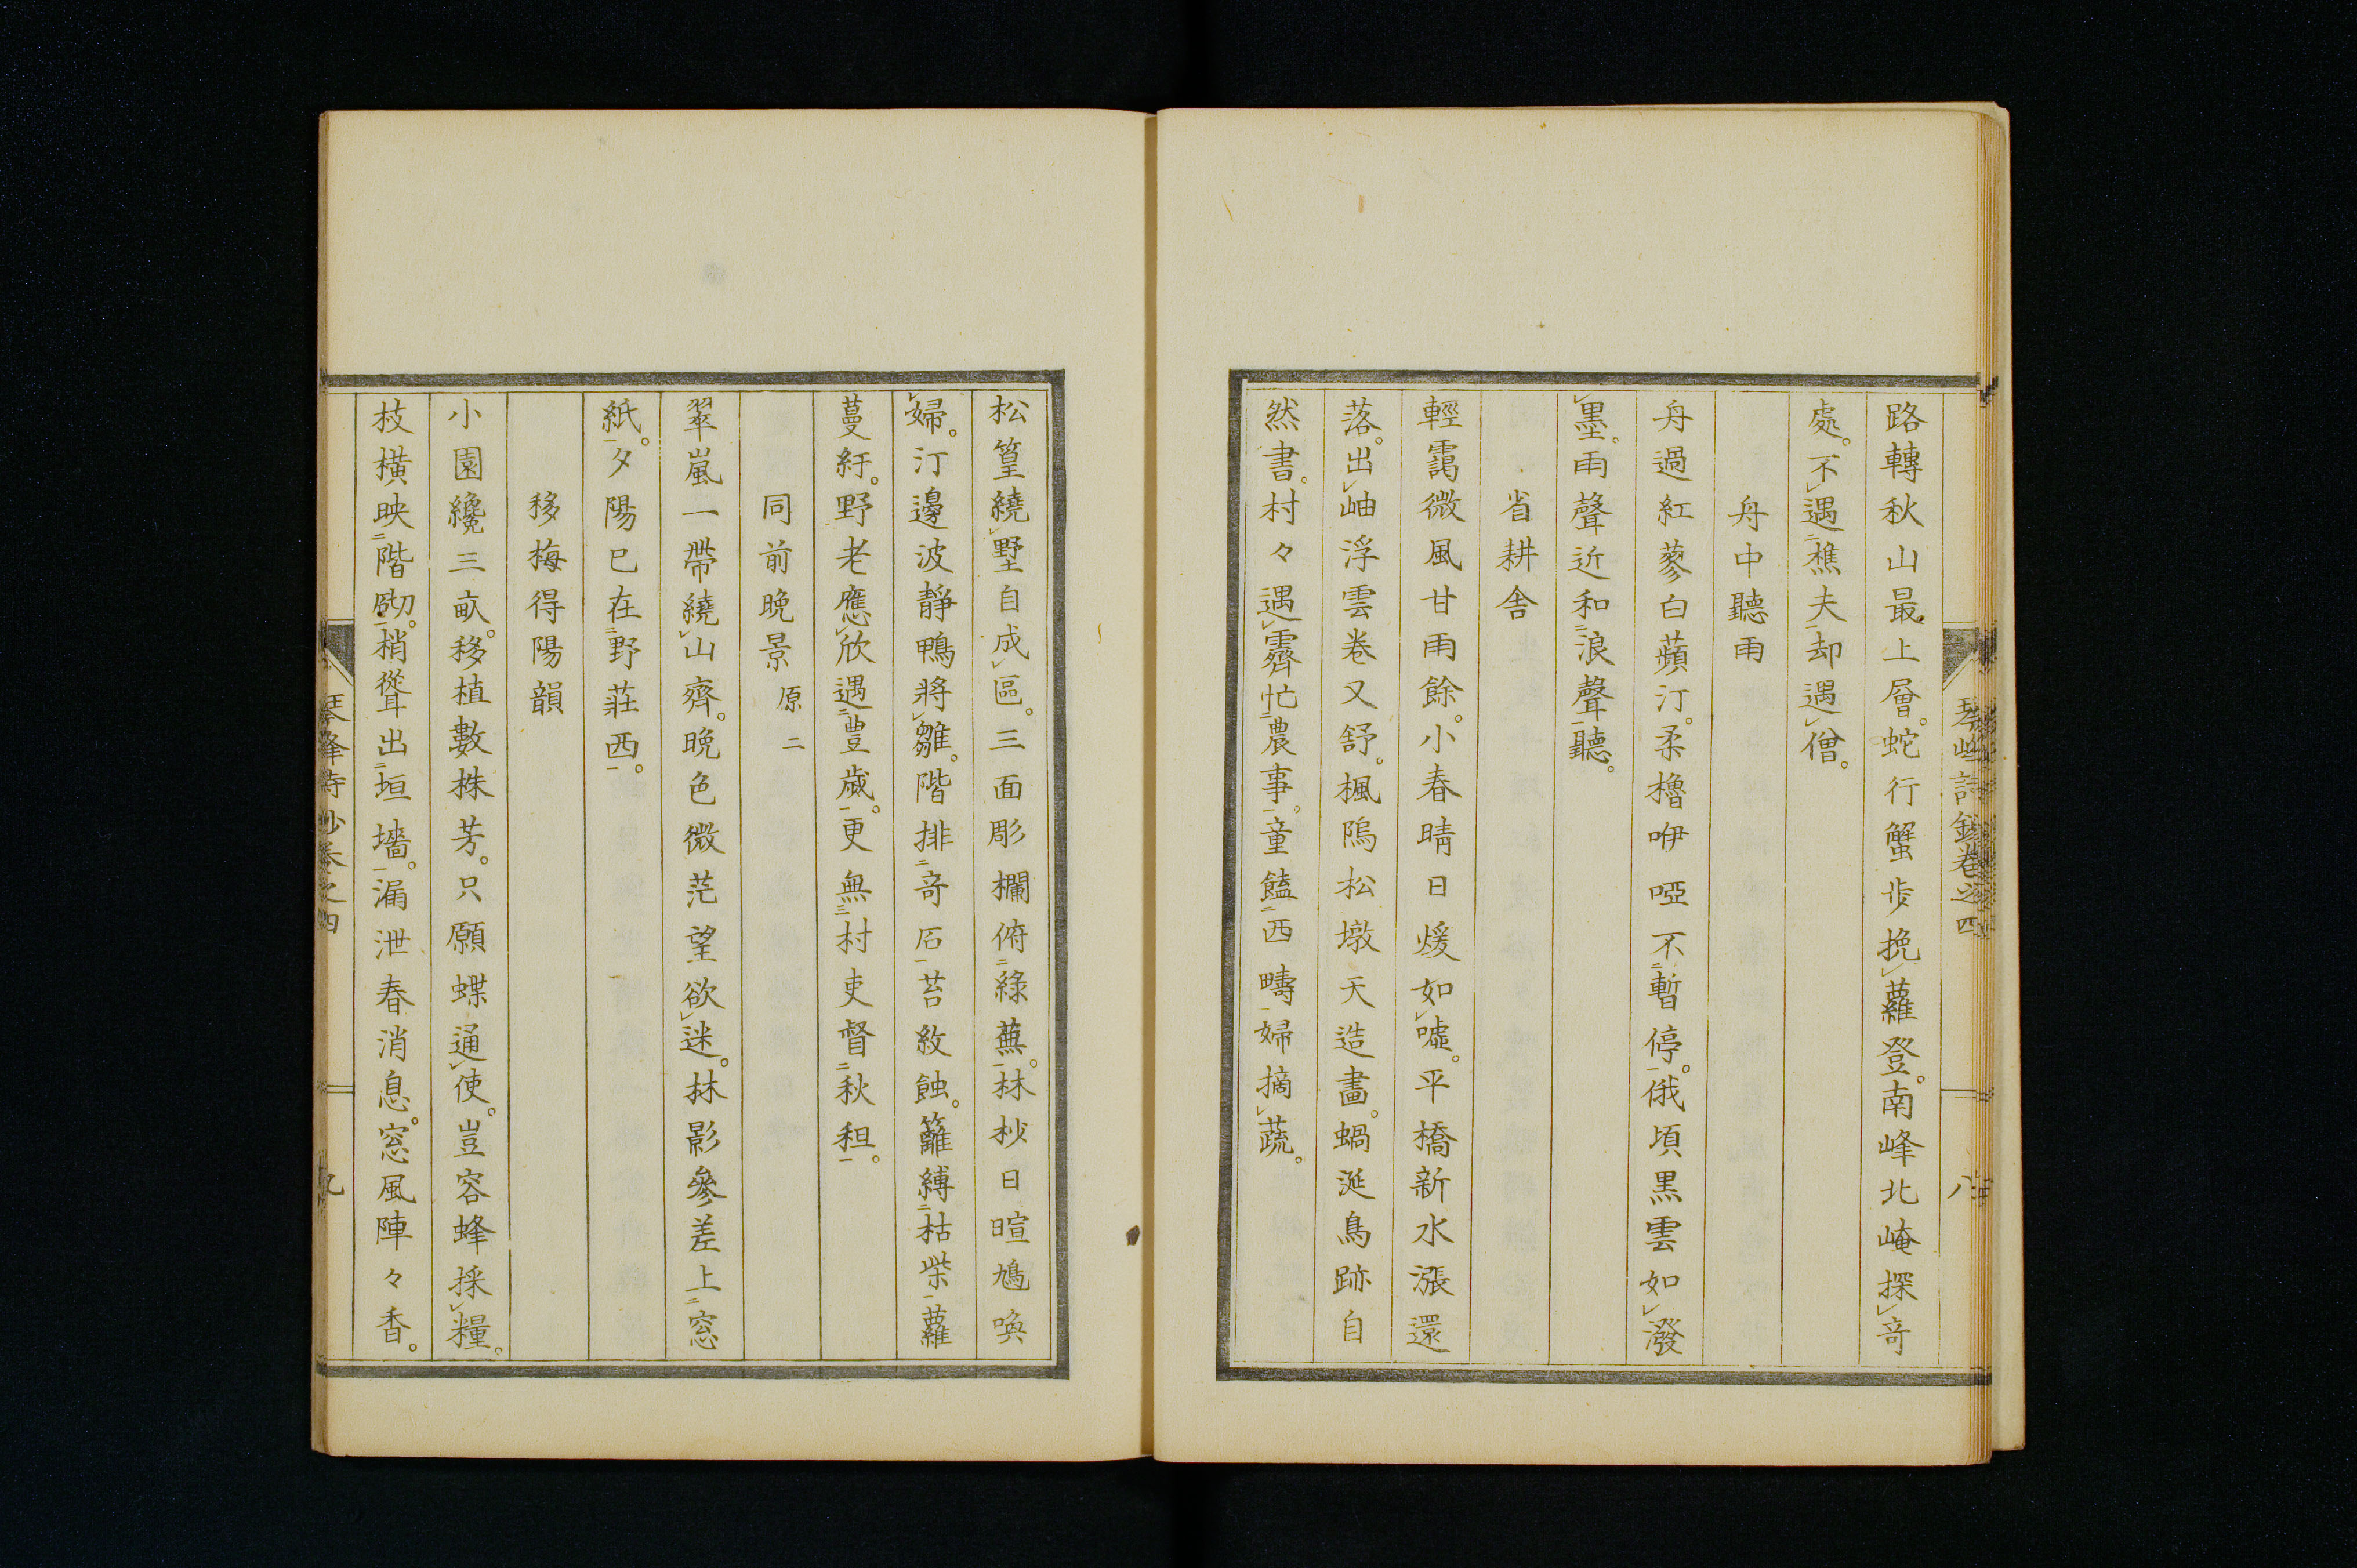 路轉秋山最上層。蛇行蟹步挽㆑蘿登。南峰北崦探㆑竒
處。不㆑遇㆓樵夫㆒却遇㆑僧。
舟中聽雨
舟過紅蓼白蘋汀。柔櫓咿啞不㆓暫停㆒。俄頃黒雲如㆑潑
㆑墨。雨聲近和㆓浪聲㆒聽。
省耕舎
輕靄微風甘雨餘。小春晴日煖如㆑嘘。平橋新水漲還
落。出㆑岫浮雲卷又舒。楓隖松墩天造畫。蝸涎鳥跡自
然書。村々遇㆑霽忙㆓農事㆒。童饁㆓西疇㆒婦摘㆑蔬。
八
松篁繞㆑墅自成㆑區。三面彫欄俯㆓綠蕪㆒。林杪日暄鳩喚
㆑婦。汀邊波靜鴨將㆑雛。階排㆓竒石㆒苔紋蝕。籬縛㆓枯柴㆒蘿
蔓紆。野老應㆑欣遇㆓豊歲㆒。更無㆔村吏督㆓秋租㆒。
同前晚景 原二
翠嵐一帶繞㆑山齊。晚色微茫望欲㆑迷。林影參差上㆓窓
紙㆒。夕陽已在㆓野莊西㆒。
移梅得陽韻
小園纔三畝。移植數株芳。只願蝶通㆑使。豈容蜂採㆑糧。
枝橫映㆓階砌㆒。梢聳出㆓垣墻㆒。漏泄春消息。窓風陣々香。
九